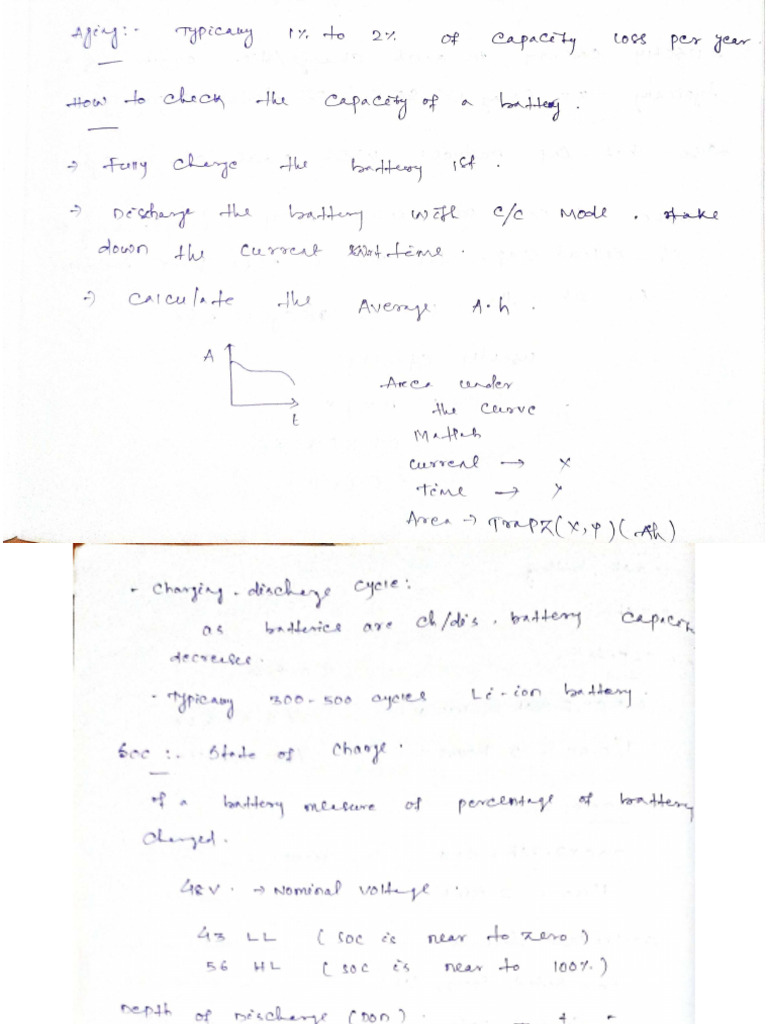 Aging:- Typically 1% to 2% of capacity loss per year.
How to check the capacity of a battery.
→ Fully charge the battery 1st.
→ Discharge the battery with c/c mode. take
down the current wrt time.
→ Calculate the Average A.h.
A
t
Area under
the curve
Matlab
current → x
Time → y
Area → Trapz(x,y)(Ah)
- Charging-discharge cycle:
as batteries are ch/dis. battery
decreases.
- Typically 300-500 cycles Li-ion battery.
SOC :- State of Charge.
of a battery measure of percentage of battery
charged.
48V. → Nominal voltage.
43 LL (SOC is near to zero)
56 HL (SOC is near to 100%)
Depth of Discharge (DOD).